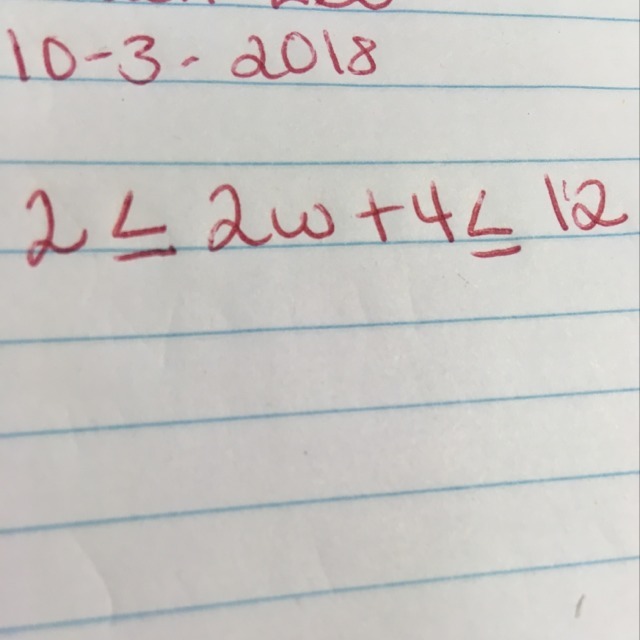 10-3-2018
2 ≤ 2w + 4 ≤ 12